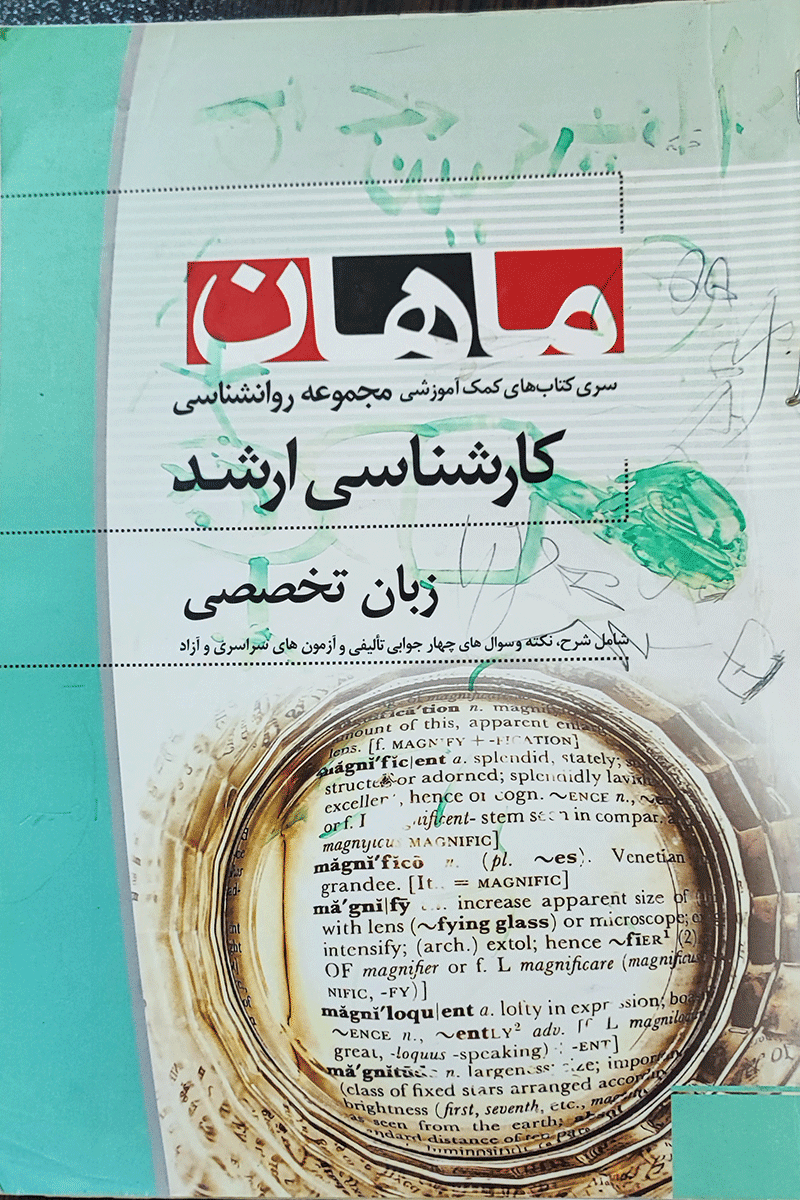 ماهان
سری کتاب‌های کمک آموزشی مجموعه روانشناسی
کارشناسی ارشد
زبان تخصصی
شامل شرح، نکته و سوال های چهار جوابی تألیفی و آزمون های سراسری و آزاد
ficā′tion n. magni
amount of this, apparent
lens. [f. MAGNIFY + -FICATION]
măgnĭ′fĭc|ent a. splendid, stately;
structe or adorned; splendidly lavi
excellen, hence or cogn. ~ENCE n.,
or f. L nificent- stem seen in compar.
magnificus MAGNIFIC]
măgnĭ′fĭcō n. (pl. ~es). Venetian
grandee. [It. = MAGNIFIC]
mă′gnĭ|fȳ increase apparent size of
with lens (~fying glass) or microscope;
intensify; (arch.) extol; hence ~fīER¹ (2)
OF magnifier or f. L magnificare (magnificus
NIFIC, -FY)]
măgnĭ′loqu|ent a. lofty in expression;
~ENCE n., ~entLY² adv. [f. L magnilo
great, -loquus -speaking) -ENT]
mă′gnĭtūde n. largeness; size;
(class of fixed stars arranged according
brightness (first, seventh, etc.,
as seen from the earth;
standard distance of ten
luminosity